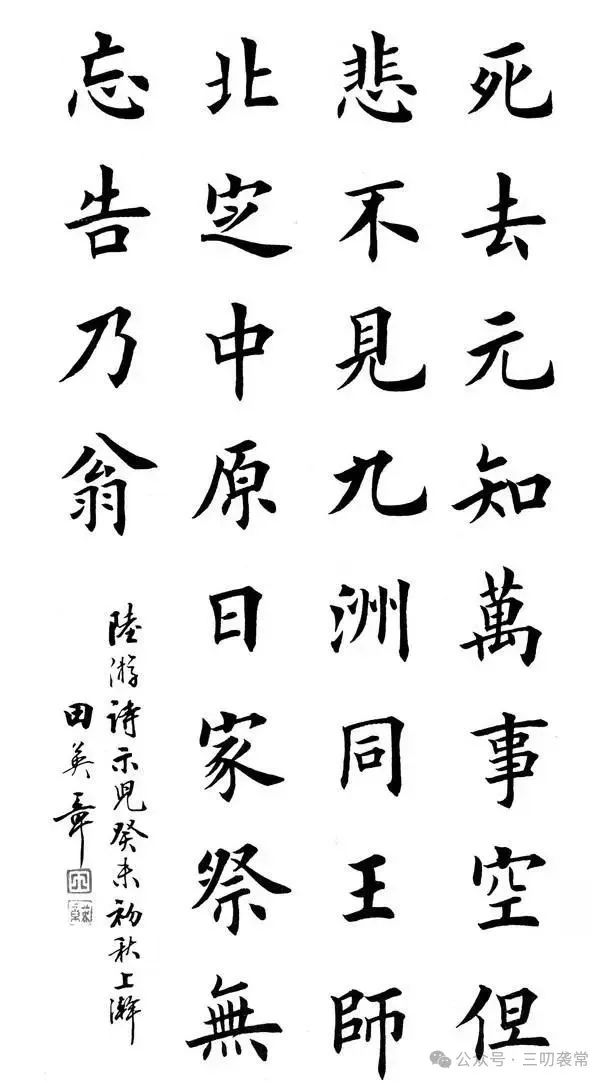 死去元知萬事空但
悲不見九洲同王師
北定中原日家祭無
忘告乃翁
陸游詩示児癸未初秋上澣
田英章
公众号·三叨袭常